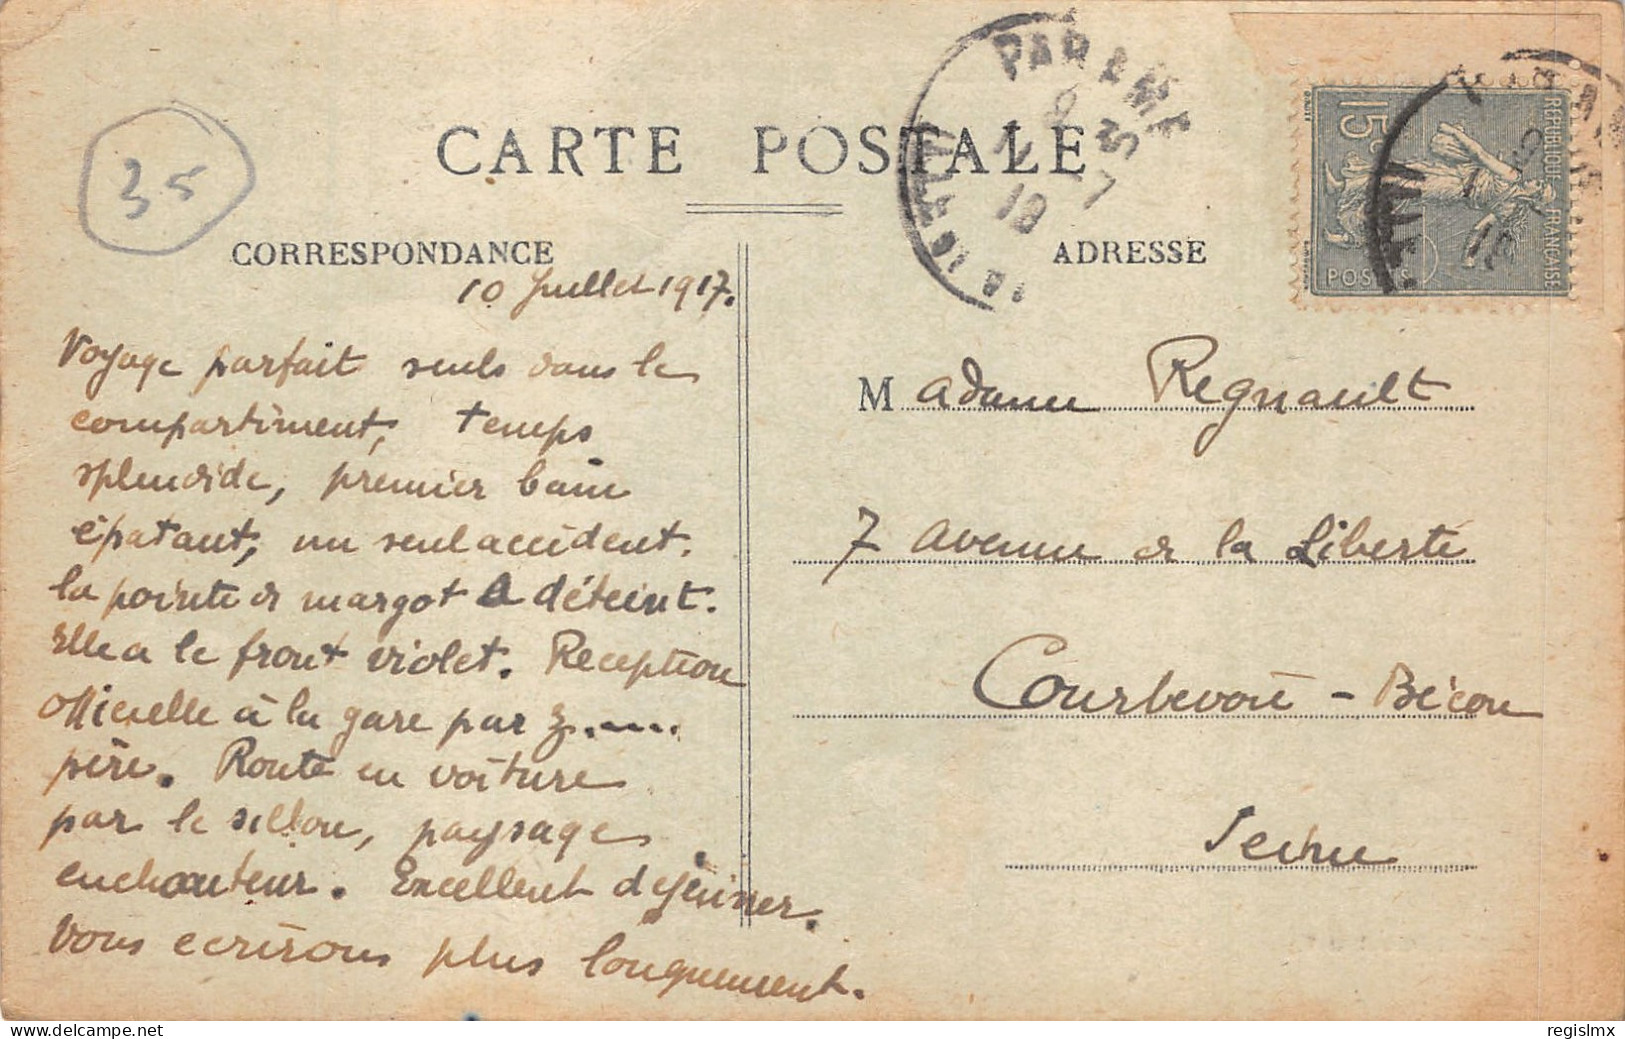 35
CARTE POSTALE
CORRESPONDANCE
10 Juillet 1917.
Voyage parfait seuls dans le
compartiment, temps
splendide, premier bain
épatant, un seul accident.
la pointe de margot a déteint.
Elle a le front violet. Reception
officielle à la gare par z.....
père. Route en voiture
par le sillon, paysage
enchanteur. Excellent déjeuner.
Vous ecrirons plus longuement.
PARAMÉ
ILLE
ADRESSE
15c
REPUBLIQUE FRANÇAISE
POSTES
Madame Regnault
7 avenue de la Liberté
Courbevoie - Bécon
Seine
delcampe.net
regislmx